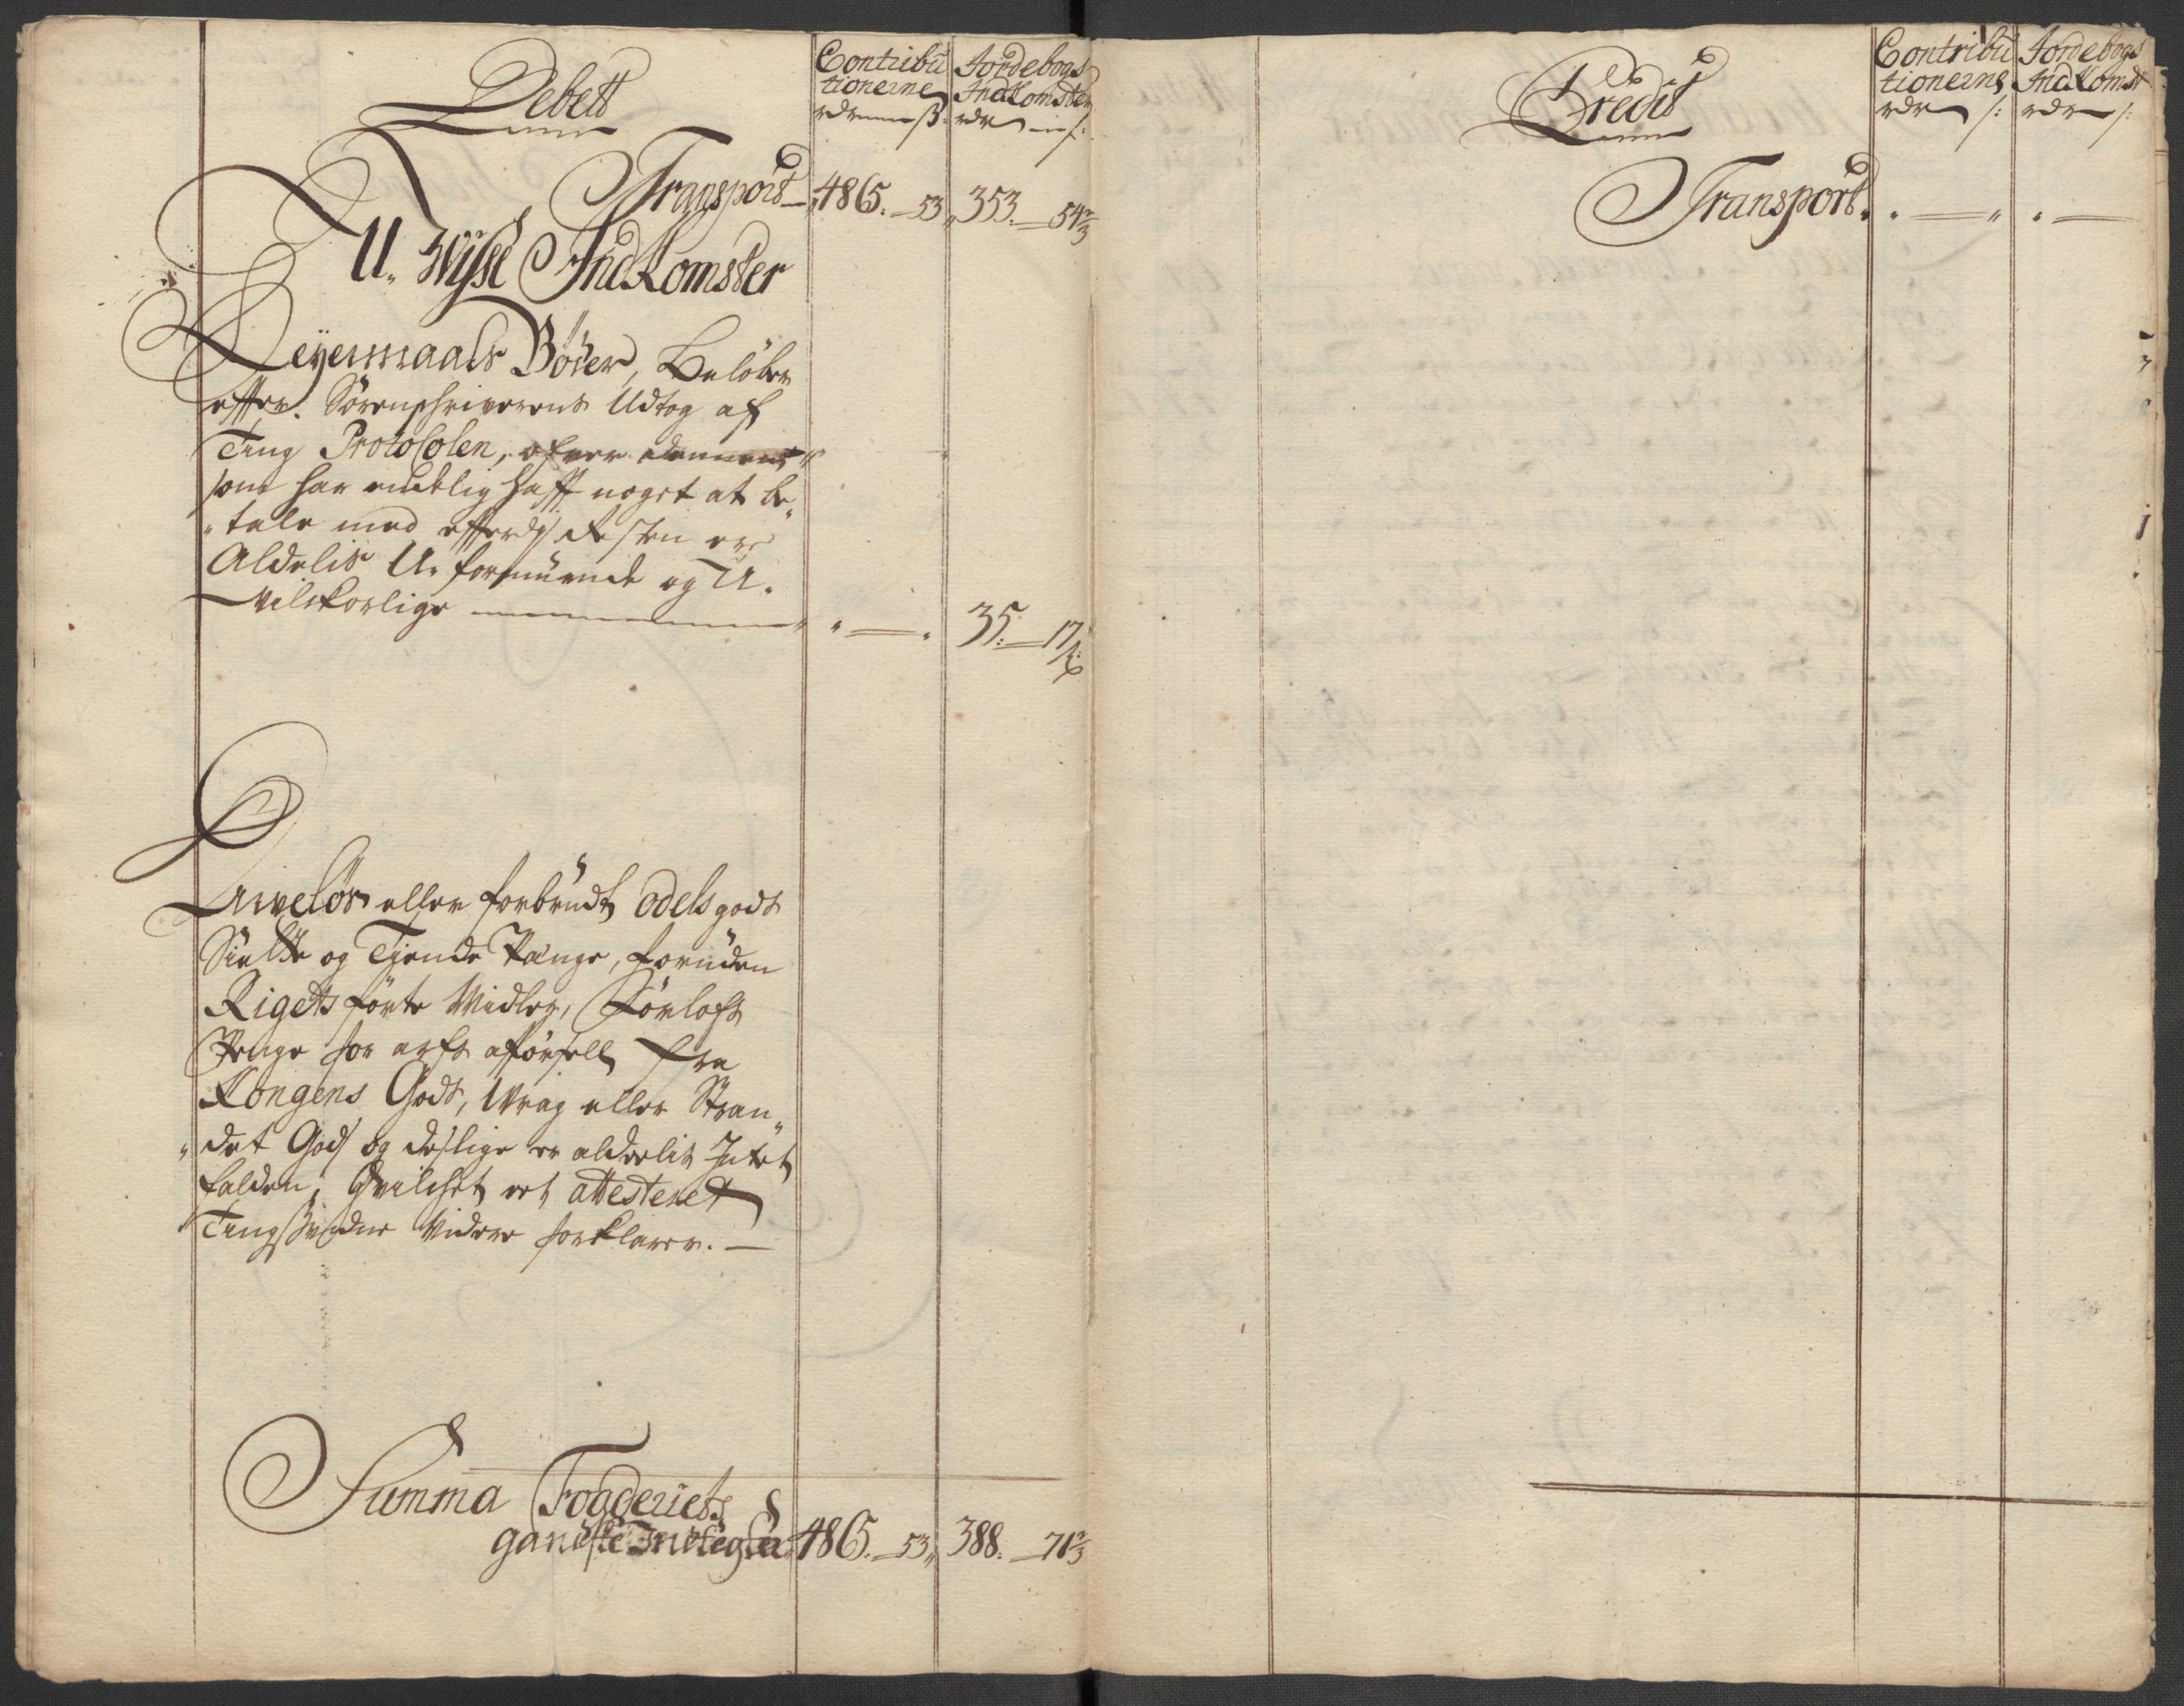 Debett
Contribu
tionerne
rdr ß:
Jordebogs
Indkomster
rdr ß:
Transport 4865. 53 353. 54 2/3
U. Wisse Indkomster
Leyermaals Bøder, Beløber
effter Sorenschriverens Udtog af
Ting Protocolen, ofver
som har endelig hafft noget at be„
„tale med efterdj Resten er
Aldelis U. formuende og U.
vilkorlige 35. 17
Arveløs eller forbrudt Odelsgods
Siette og Tjende Penge, foruden
Rigets førte Midler, Førlofs
Penge for arfs afførsell fra
Kongens Gods, Vrag eller Stran„
„det Gods og deslige er alderlis Intet
falden, Hvilchet det attesteret
Tingsvidne Videre forklarer.
Summa Fogderiets
gandske Indtegter 4865. 53 388. 71 2/3
Credit
Contribu
tionerne
rdr ß:
Jordebogs
Indkomst
rdr ß:
Transport.